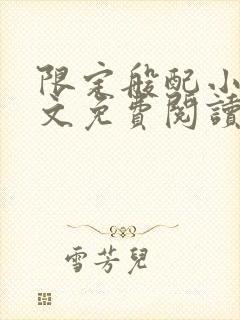 限定般配小
文免費閱讀
雪芳兒